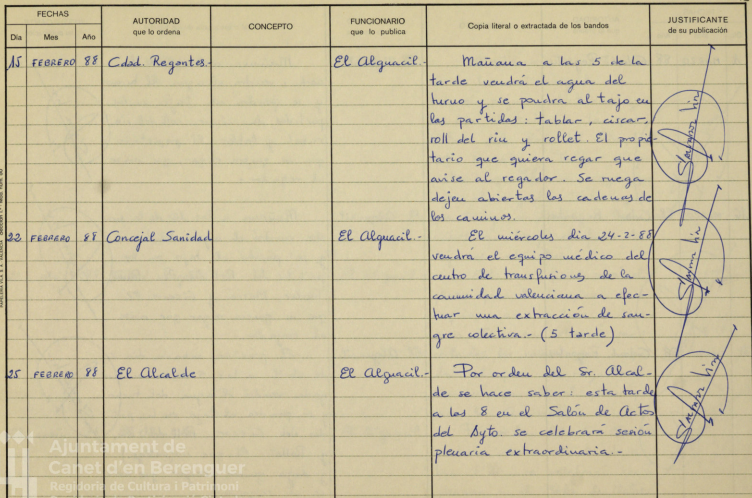 FECHAS
Dia Mes Año
AUTORIDAD
que lo ordena
CONCEPTO
FUNCIONARIO
que lo publica
Copia literal o extractada de los bandos
JUSTIFICANTE
de su publicación
15 FEBRERO 88 Cdad. Regantes.- El Alguacil.- Mañana a las 5 de la
tarde vendrá el agua del
turno y se pondra al tajo en
las partidas: tablar, ciscar,
roll del riu y rollet. El propie-
tario que quiera regar que
avise al regador. Se ruega
dejen abiertas las cadenas de
los caminos.
22 FEBRERO 88 Concejal Sanidad El Alguacil.- El miércoles dia 24-2-88
vendrá el equipo médico del
centro de transfusiones de la
comunidad valenciana a efec-
tuar una extracción de san-
gre colectiva.- (5 tarde)
25 FEBRERO 88 El Alcalde El Alguacil.- Por orden del Sr. Alcal-
de se hace saber: esta tarde
a las 8 en el Salón de Actos
del Ayto. se celebrará sesión
plenaria extraordinaria.-
Ajuntament de
Canet d'en Berenguer
Regidoria de Cultura i Patrimoni